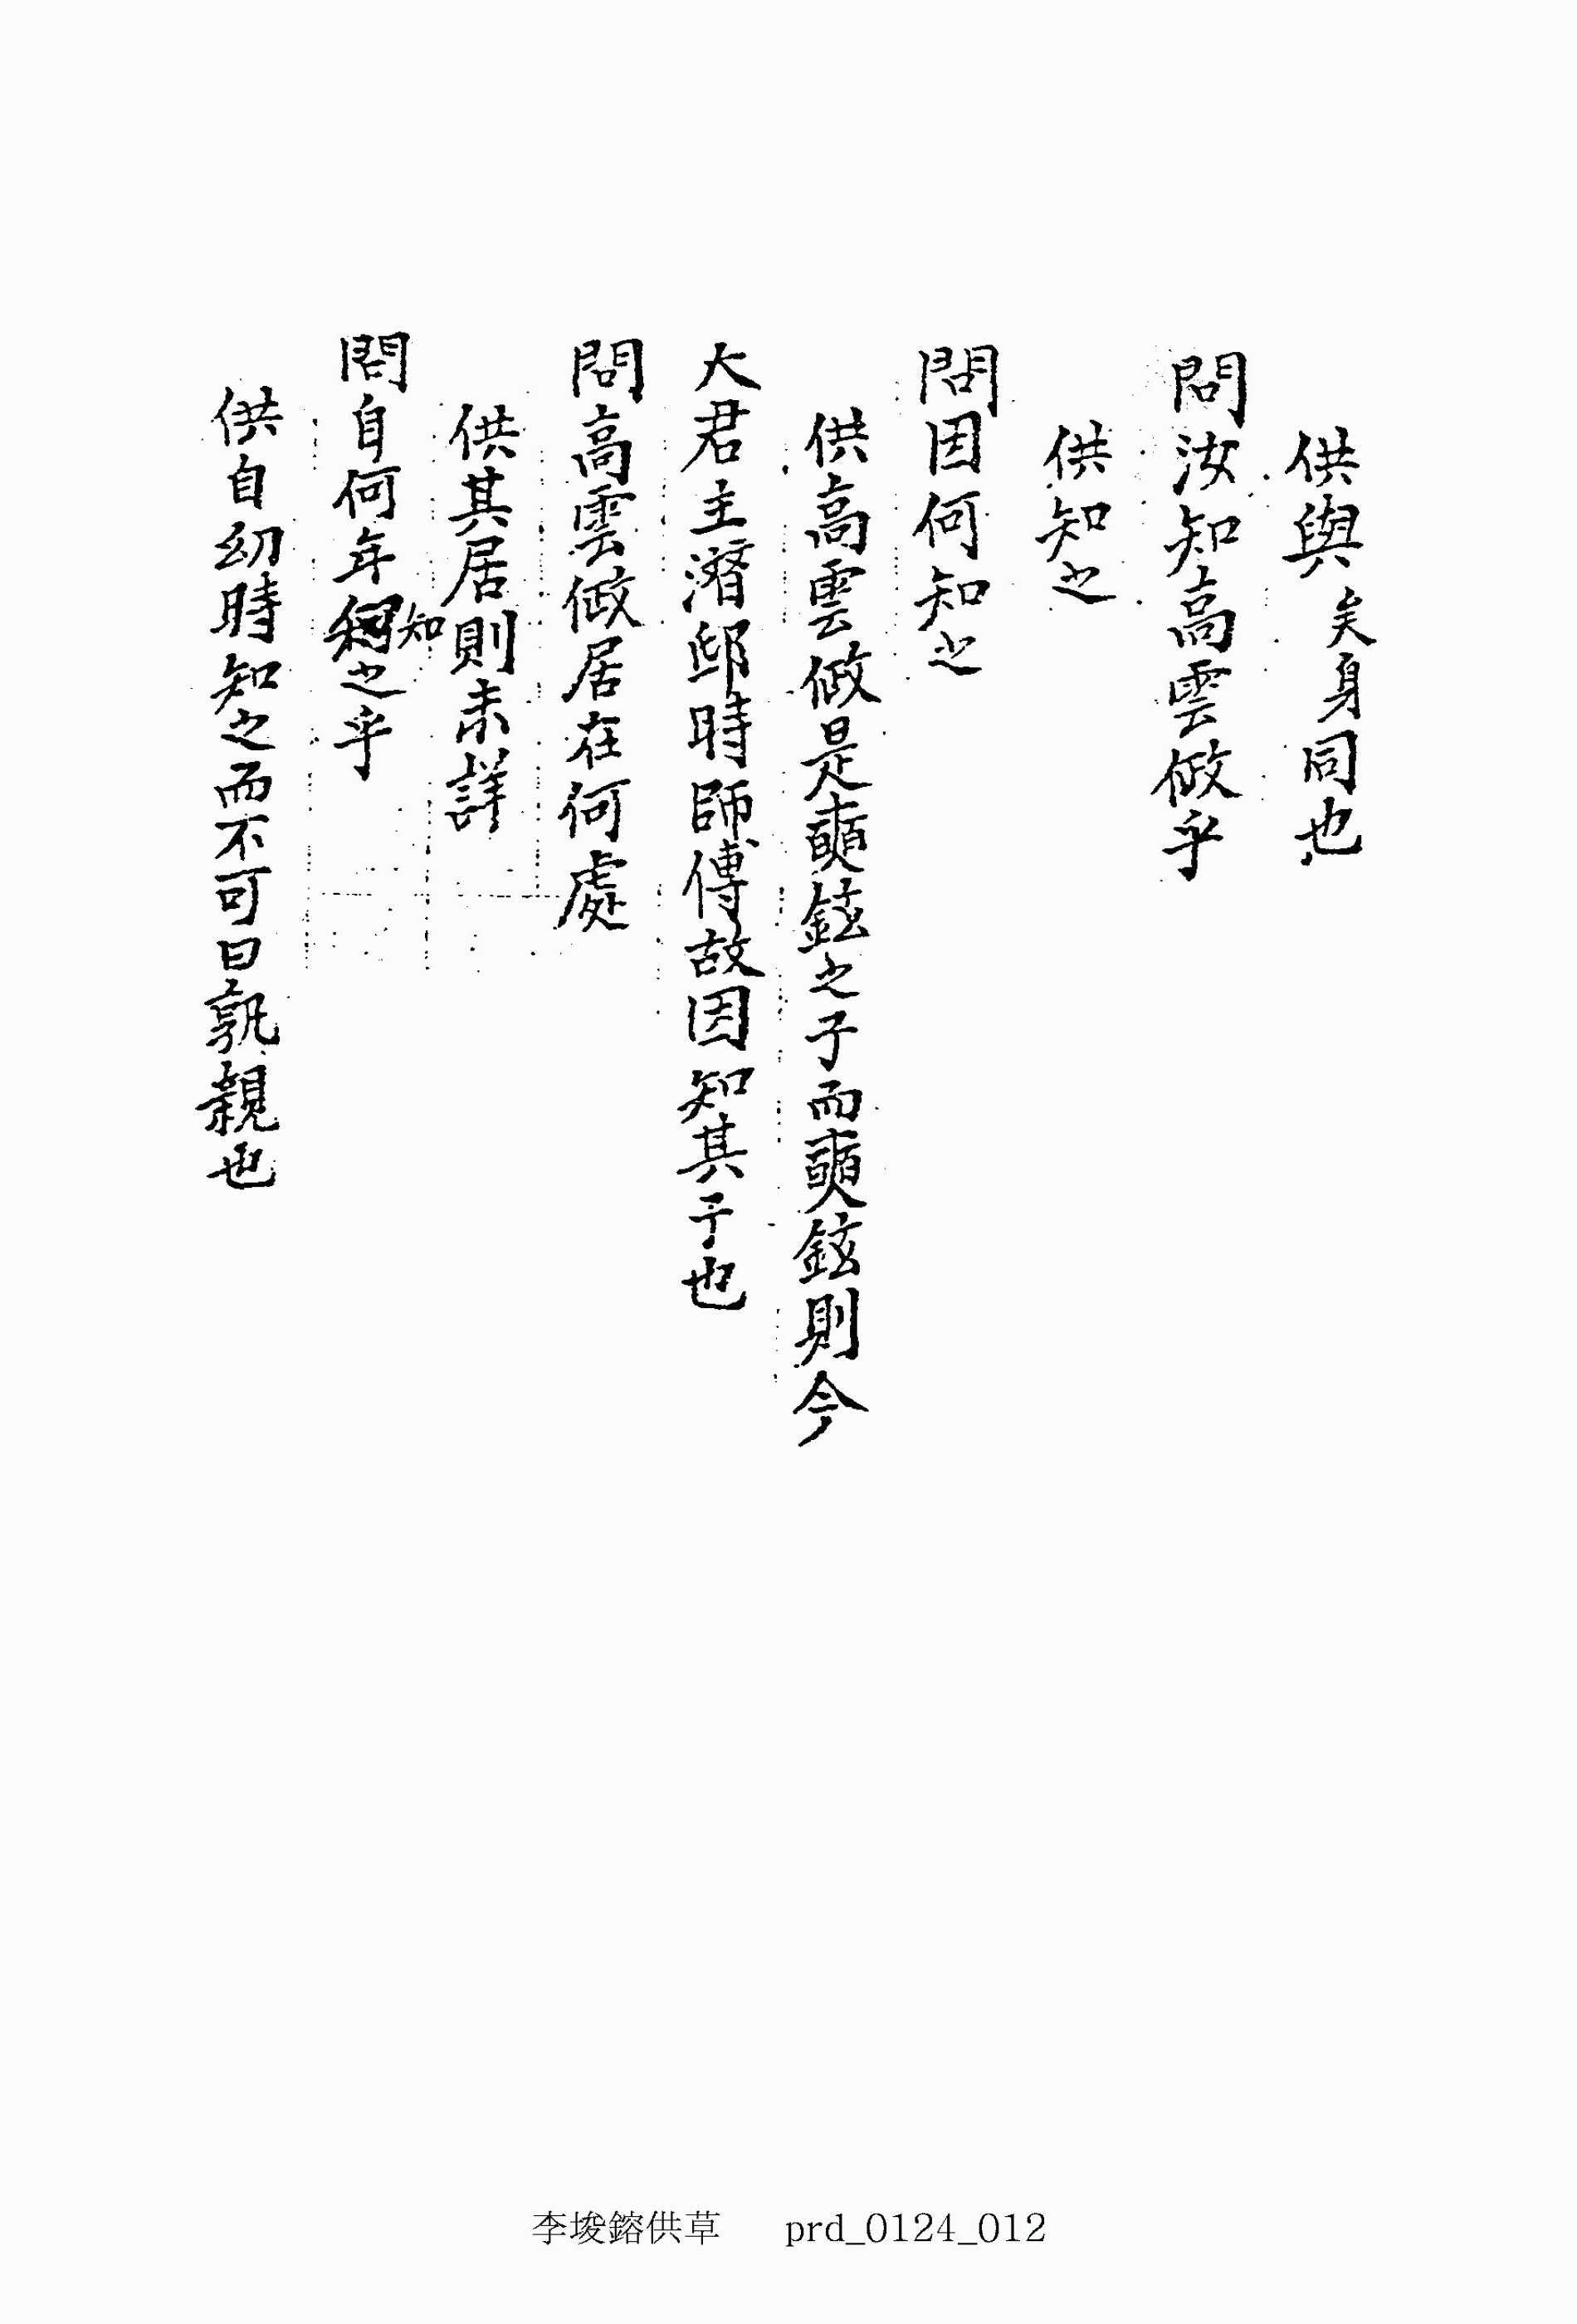 供與 矣身同也
問汝知高雲倣乎
供知之
問因何知之
供高雲倣是奭鉉之子而奭鉉則今
大君主潛邸時師傅故因知其子也
問高雲倣居在何處
供其居則未詳
問自何年知之乎
供自幼時知之而不可曰孰親也
李埈鎔供草 prd_0124_012